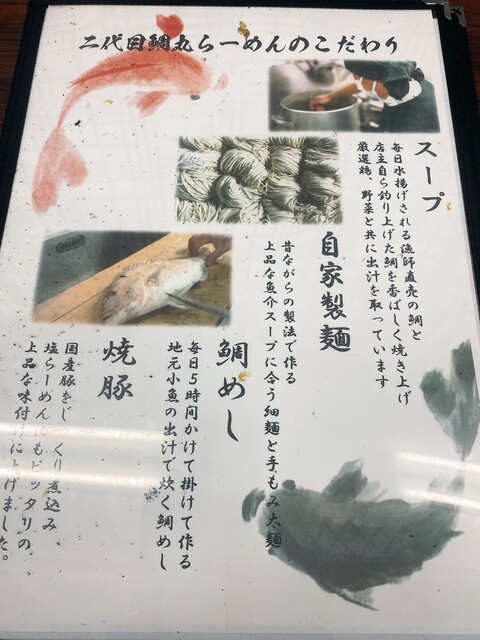 二代目鯛丸らーめんのこだわり
スープ
毎日水揚げされる漁師直売の鯛と
店主自ら釣り上げた鯛を香ばしく焼き上げ
厳選鶏、野菜と共に出汁を取っています
自家製麺
昔ながらの製法で作る
上品な魚介スープに合う細麺と手もみ太麺
鯛めし
毎日5時間かけて掛けて作る
地元小魚の出汁で炊く鯛めし
焼豚
国産豚をじっくり煮込み
塩らーめんにもピッタリの
上品な味付けに上げました。